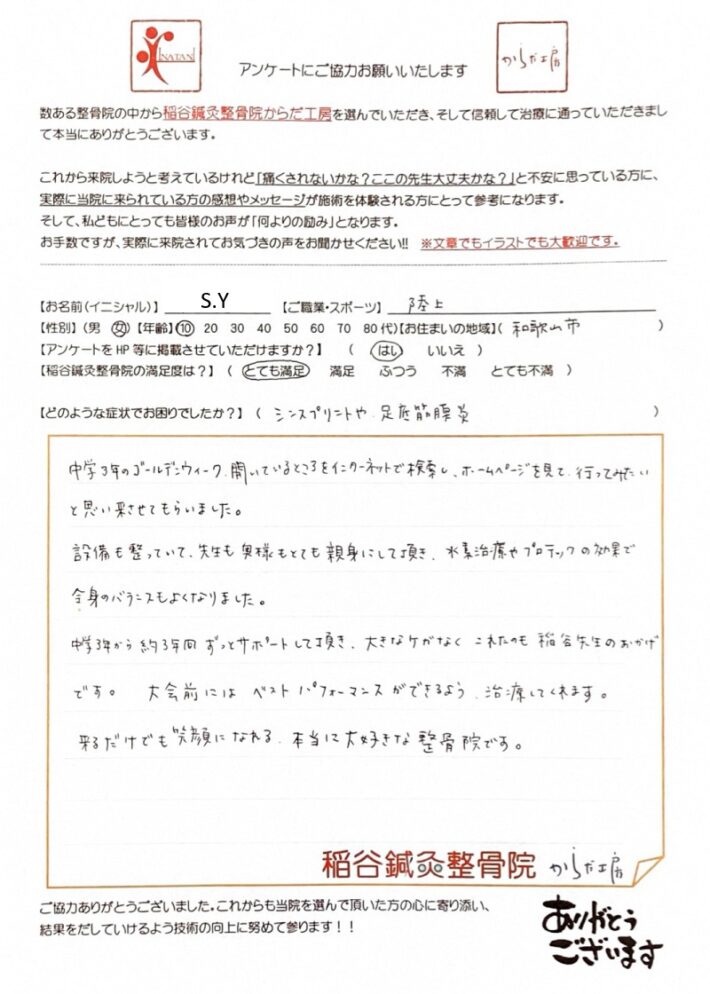 INATANI
からだ工房
アンケートにご協力お願いいたします
数ある整骨院の中から稲谷鍼灸整骨院からだ工房を選んでいただき、そして信頼して治療に通っていただきまし
て本当にありがとうございます。
これから来院しようと考えているけれど「痛くされないかな？ここの先生大丈夫かな？」と不安に思っている方に、
実際に当院に来られている方の感想やメッセージが施術を体験される方にとって参考になります。
そして、私どもにとっても皆様のお声が「何よりの励み」となります。
お手数ですが、実際に来院されてお気づきの声をお聞かせください!! ※文章でもイラストでも大歓迎です。
【お名前（イニシャル）】 S.Y 【ご職業・スポーツ】 陸上
【性別】（男 女）【年齢】（10 20 30 40 50 60 70 80代）【お住まいの地域】（ 和歌山市 ）
【アンケートをHP等に掲載させていただけますか？】 （ はい いいえ ）
【稲谷鍼灸整骨院の満足度は？】（ とても満足 満足 ふつう 不満 とても不満 ）
【どのような症状でお困りでしたか？】（ シンスプリントや、足底筋膜炎 ）
中学3年のゴールデンウィーク、開いているところをインターネットで検索し、ホームページを見て、行ってみたい
と思い来させてもらいました。
設備も整っていて、先生も奥様もとても親身にして頂き、水素治療やプロテックの効果で
全身のバランスもよくなりました。
中学3年から約3年間ずっとサポートして頂き、大きなケガなくこれたのも稲谷先生のおかげ
です。 大会前にはベストパフォーマンスができるよう、治療してくれます。
来るだけでも笑顔になれる、本当に大好きな整骨院です。
稲谷鍼灸整骨院 からだ工房
ご協力ありがとうございました。これからも当院を選んで頂いた方の心に寄り添い、
結果をだしていけるよう技術の向上に努めて参ります！！
ありがとう
ございます